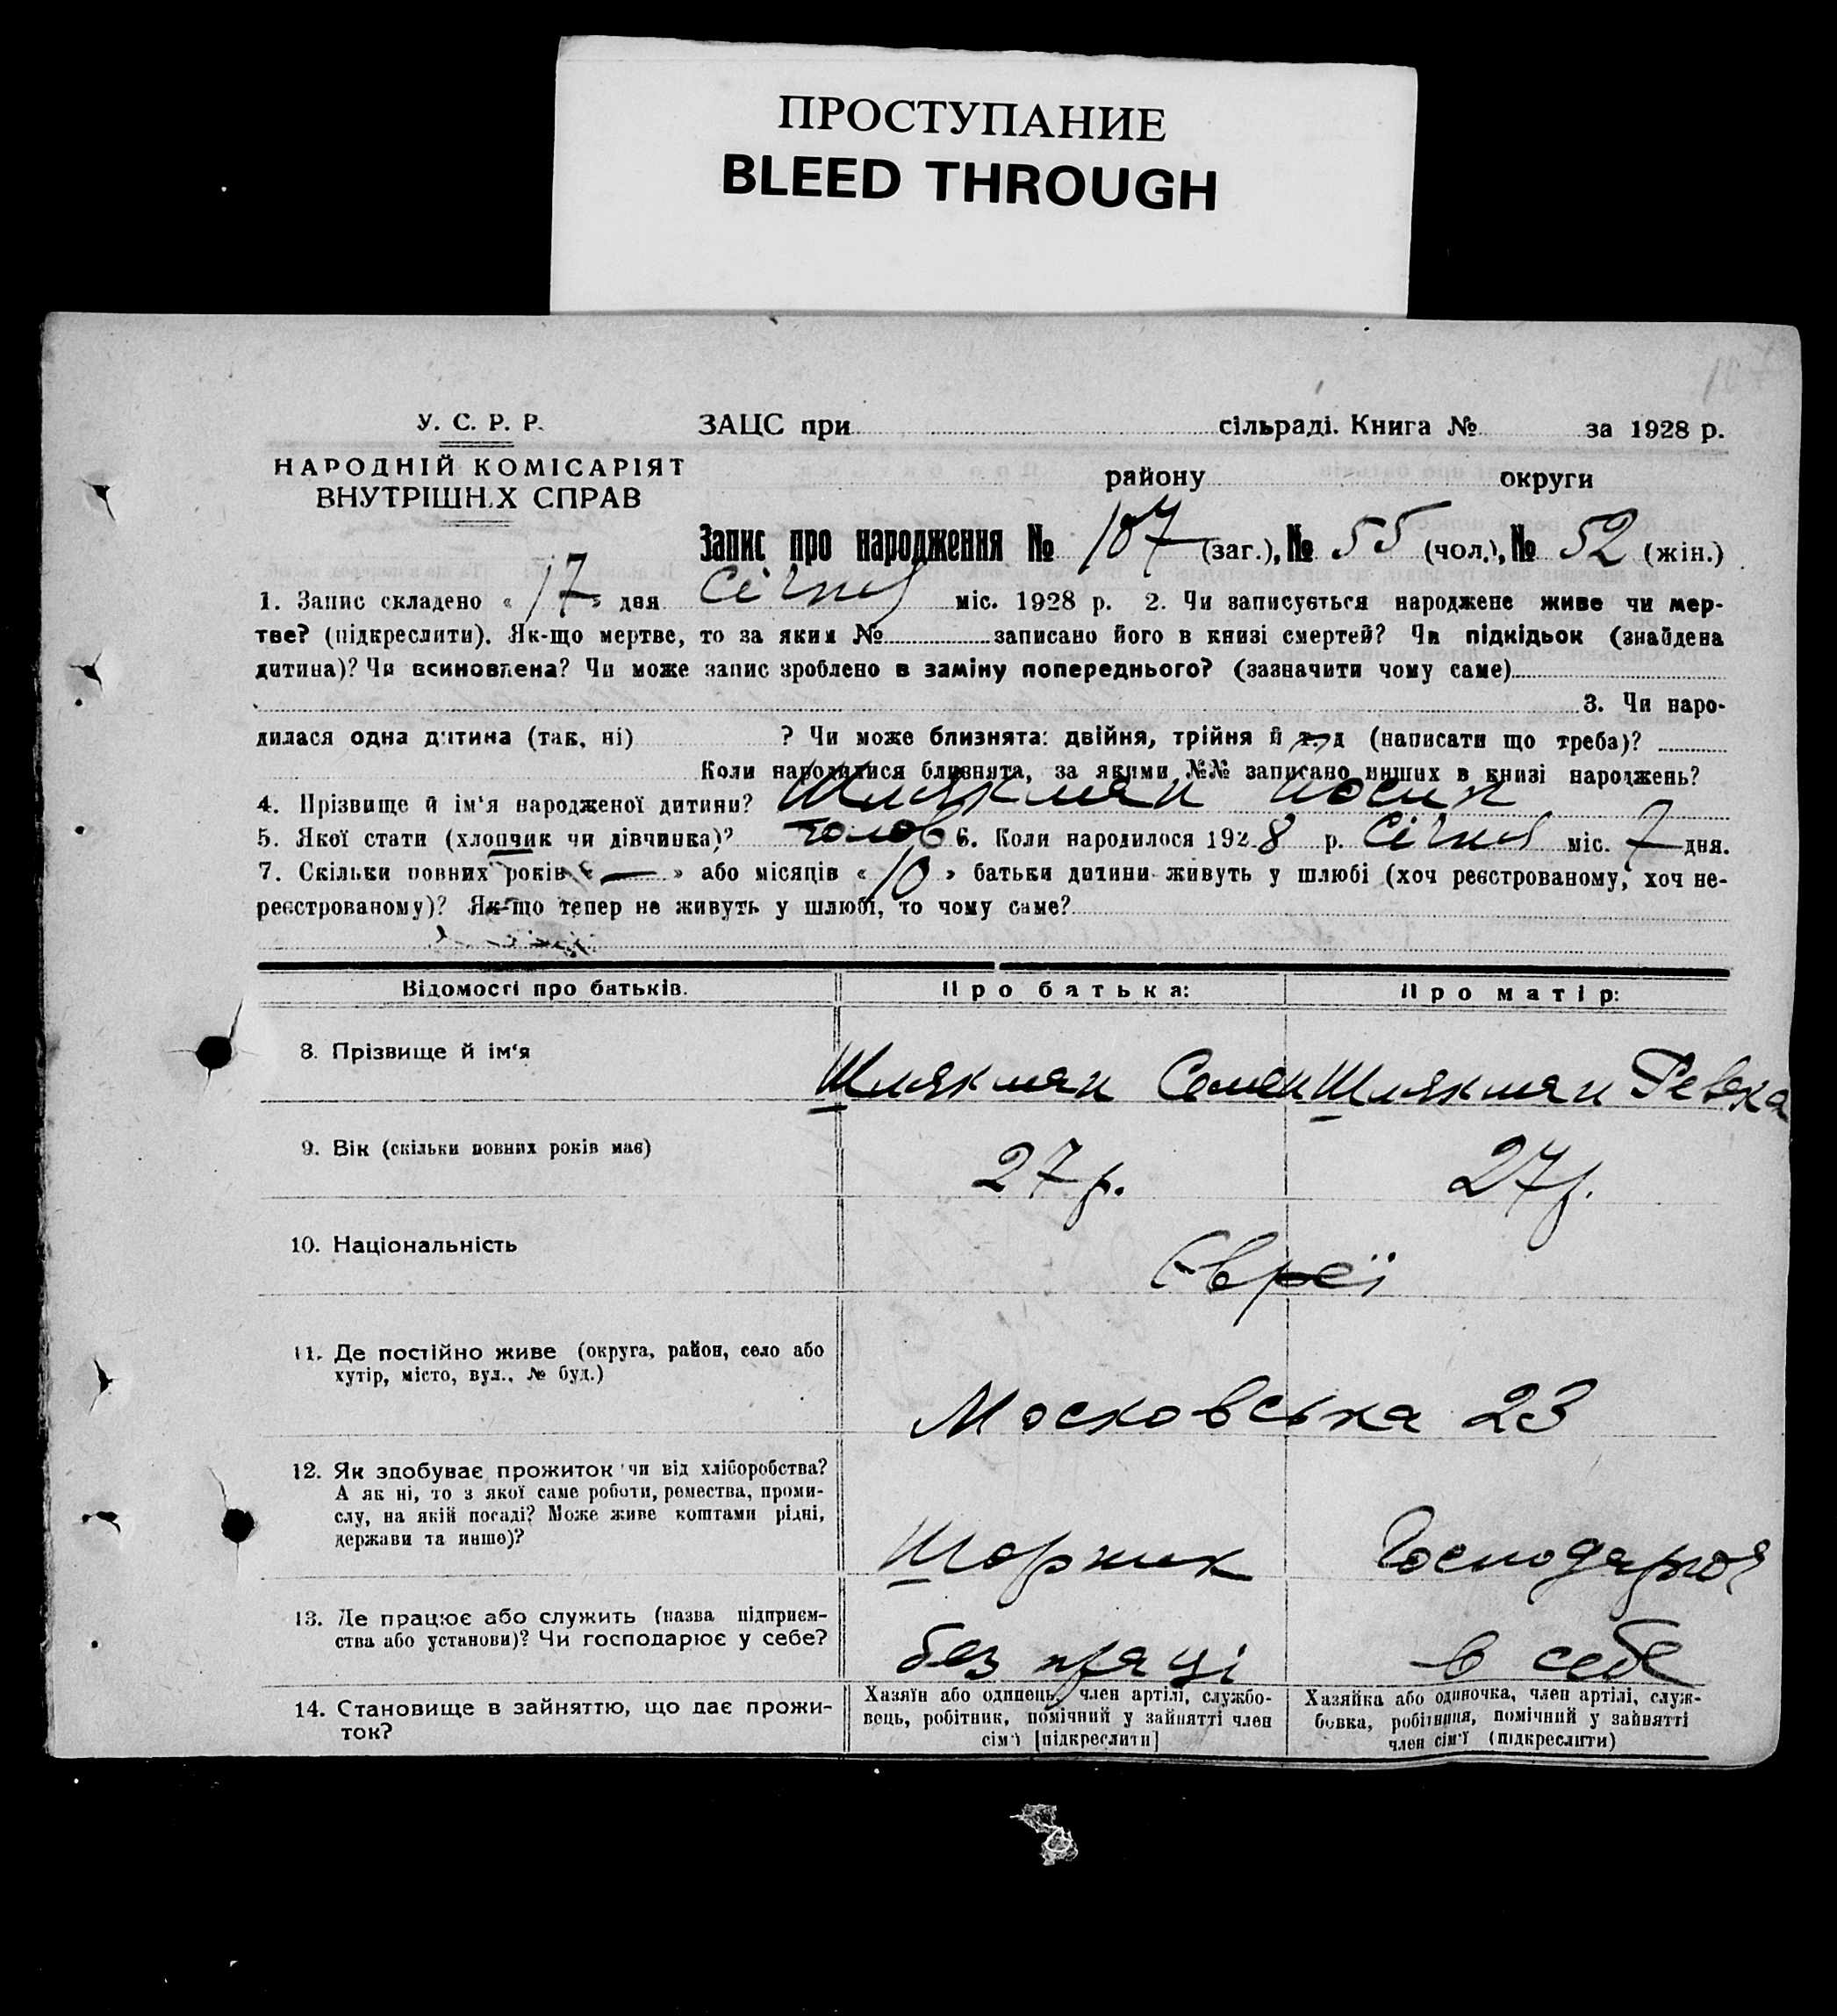 ПРОСТУПАНИЕ
BLEED THROUGH
107
У. С. Р. Р.
НАРОДНІЙ КОМІСАРІЯТ
ВНУТРІШНіХ СПРАВ
ЗАЦС при сільраді. Книга № за 1928 р.
району округи
Запис про народження № 107 (заг.), № 55 (чол.), № 52 (жін.)
1. Запис складено « 17 » дня Січня міс. 1928 р. 2. Чи записується народжене живе чи мер-
тве? (підкреслити). Як-що мертве, то за яким № записано його в книзі смертей? Чи підкідьок (знайдена
дитина)? Чи всиновлена? Чи може запис зроблено в заміну попереднього? (зазначити чому саме)
3. Чи наро-
дилася одна дитина (так, ні) ? Чи може близнята: двійня, трійня й т. д (написати що треба)?
Коли народилися близнята, за якими №№ записано инших в книзі народжень?
4. Прізвище й ім'я народженої дитини? Шлякман Йосип
5. Якої стати (хлопчик чи дівчинка)? чолов 6. Коли народилося 1928 р. Січня міс. 7 дня.
7. Скільки повних років « — » або місяців « 10 » батьки дитини живуть у шлюбі (хоч реєстрованому, хоч не-
реєстрованому)? Як-що тепер не живуть у шлюбі, то чому саме?
Відомості про батьків. Про батька: Про матір:
8. Прізвище й ім'я Шлякман Семен Шлякман Ревека
9. Вік (скільки повних років має) 27 р. 27 р.
10. Національність Євреї
11. Де постійно живе (округа, район, село або
хутір, місто, вул., № буд.)
Московська 23
12. Як здобуває прожиток чи від хліборобства?
А як ні, то з якої саме роботи, ремества, проми-
слу, на якій посаді? Може живе коштами рідні,
держави та инше)?
Шорник Господарює
13. Де працює або служить (назва підприєм-
ства або установи)? Чи господарює у себе?
без праці в себе
14. Становище в зайняттю, що дає прожи-
ток?
Хазяїн або одинець, член артілі, службо-
вець, робітник, помічний у зайнятті член
сім'ї [підкреслити]
Хазяйка або одиночка, член артілі, служ-
бовка, робітниця, помічний у зайнятті
член сім'ї (підкреслити)